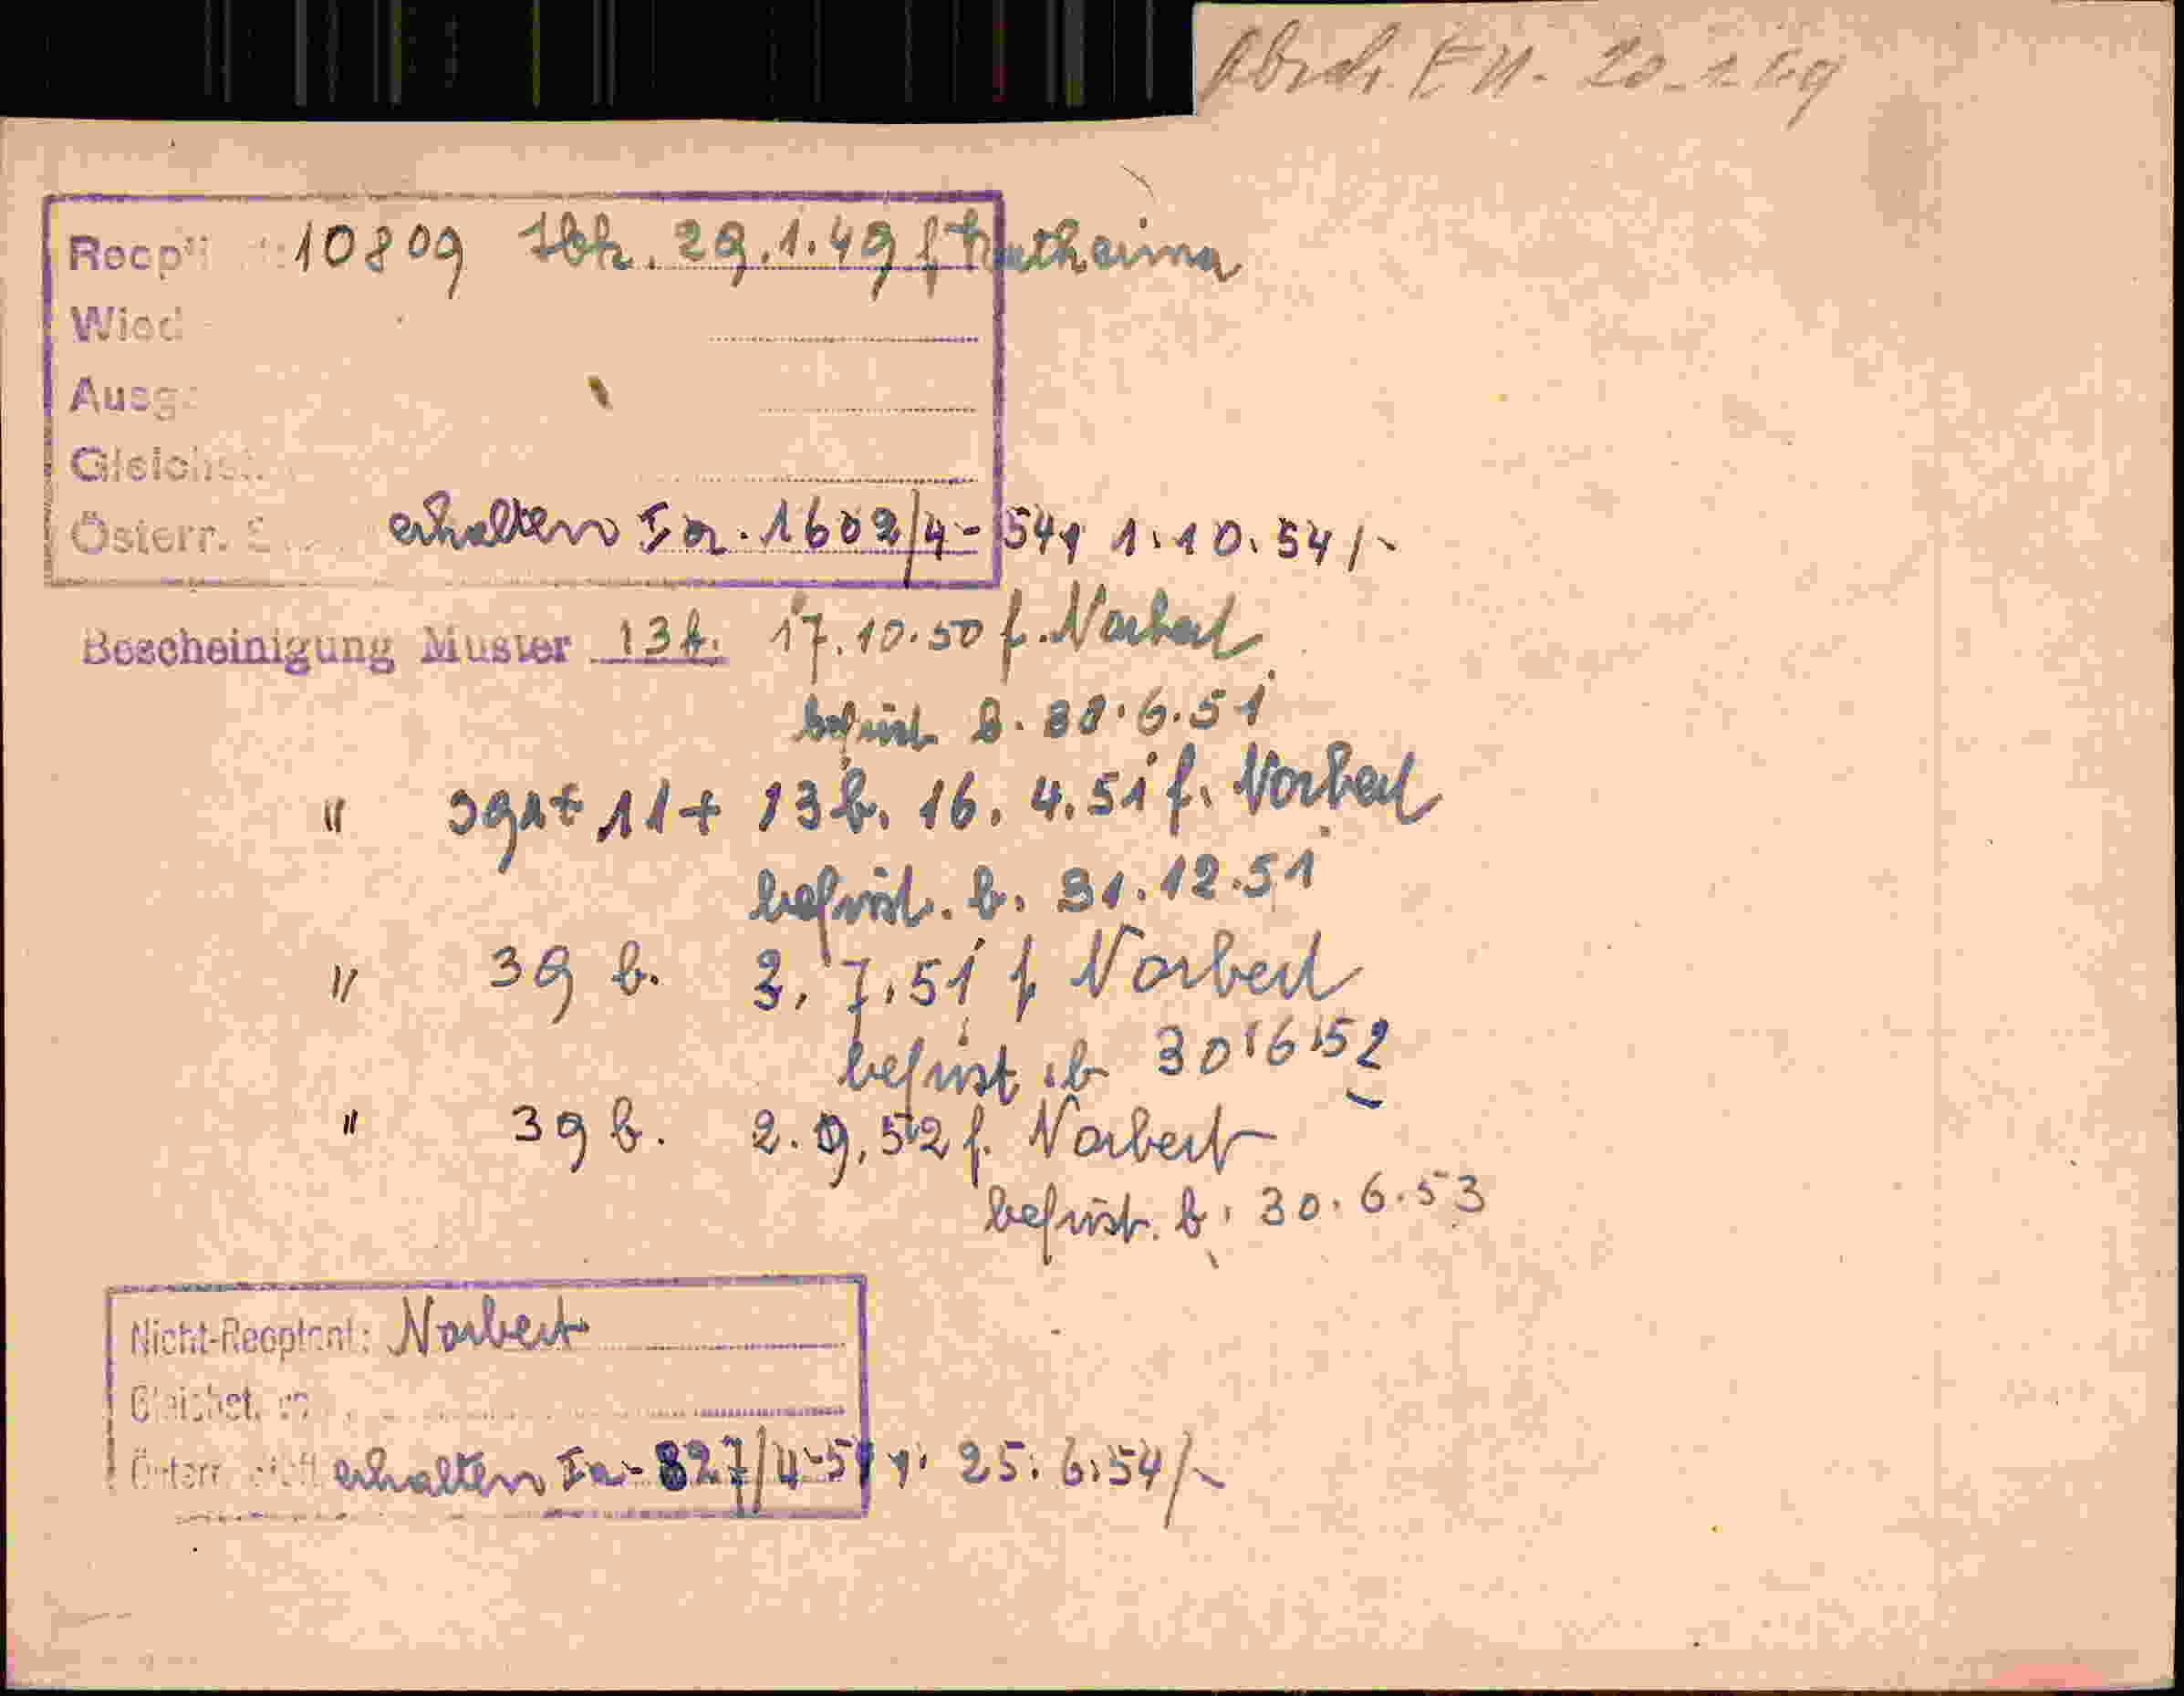 Absch. E N. 20.1.49
10809 Ibk. 29.1.49 f Katharina
Wied
Ausg
Gleich
Österr. erhalten Ia. 1602/4-54, 1.10.54/-
Bescheinigung Muster 13b. 17.10.50 f. Norbert
befrist. b. 30.6.51
" 39a+ 11+ 13b. 16.4.51 f. Norbert
befrist. b. 31.12.51
" 39 b. 3.7.51 f Norbert
befrist. b 30.6.52
" 39 b. 2.9.52 f. Norbert
befrist. b. 30.6.53
Nicht-Recptant: Norbert
Gleichst.
Österr. erhalten Ia- 827/4-54, 25.6.54/-